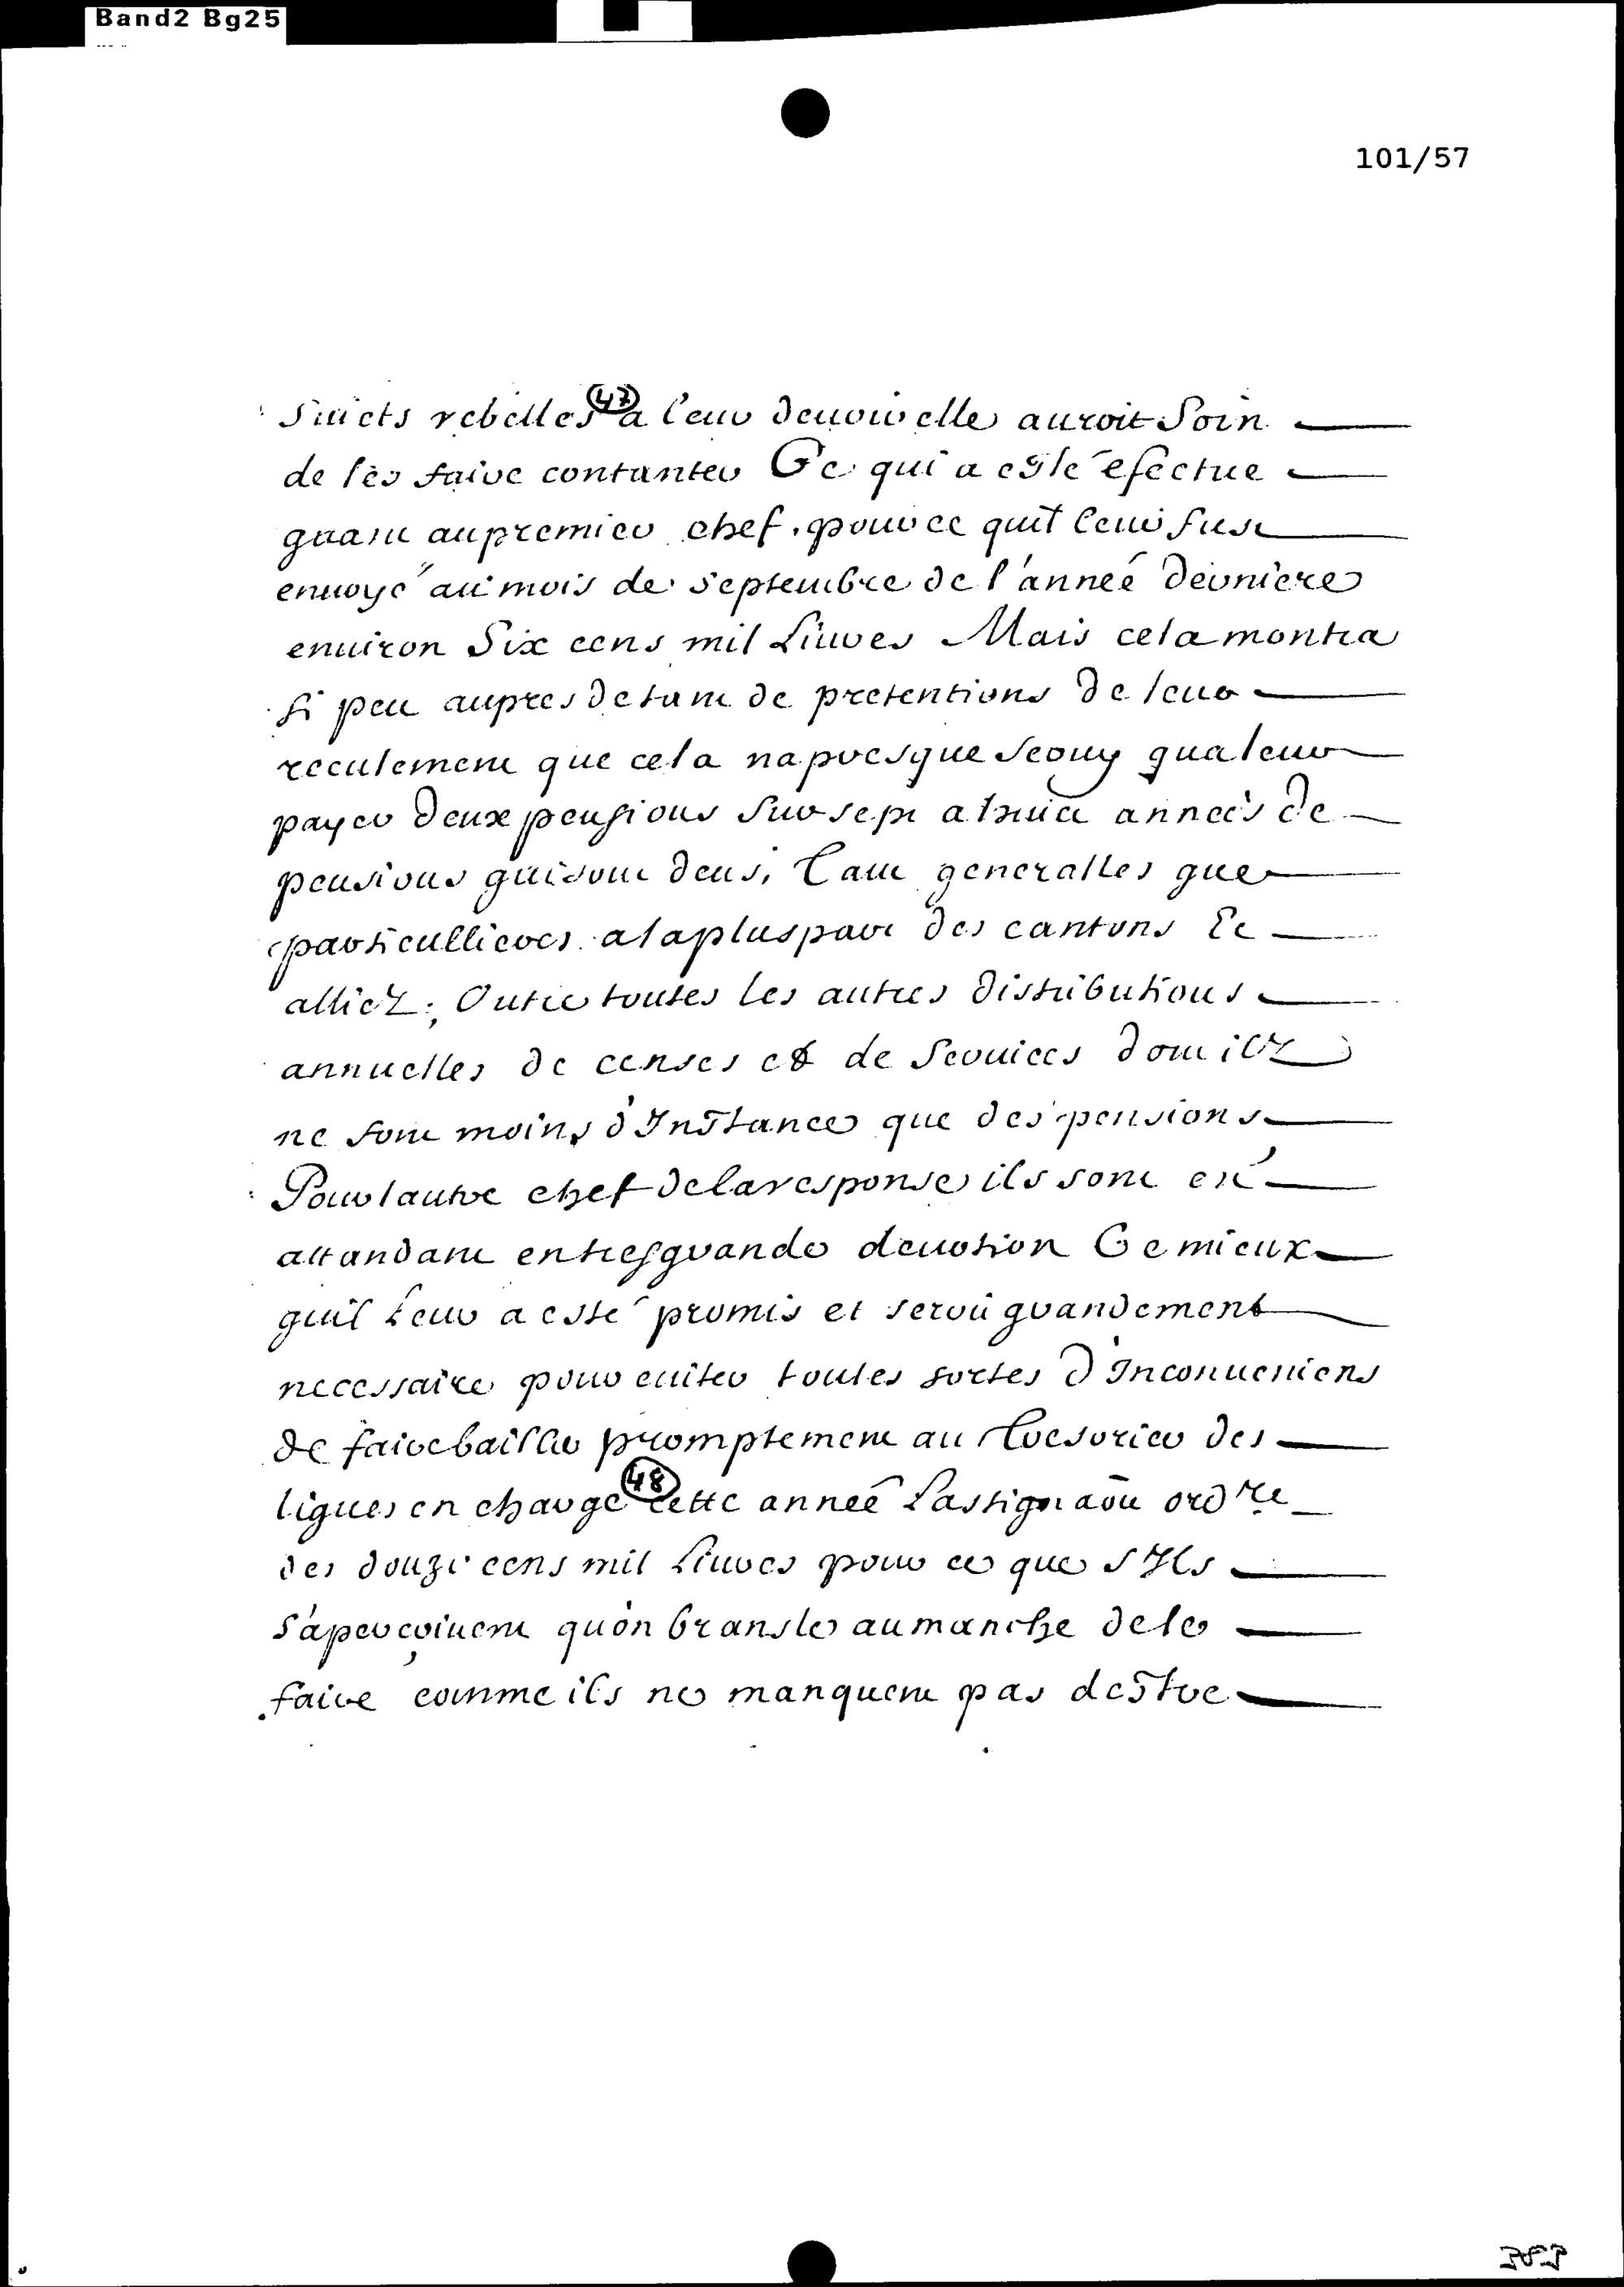 Band2 Bg25
101/57
Suiets rebelles (47) a leur deuoir elle auroit Soin
de les faire contanter Ce qui a esté éfectue
quant au premier chef, pour ce quil leur fust
enuoyé au mois de septembre de l'année derniere
enuiron Six cens mil Liures Mais cela montra
si peu aupres de tant de pretentions de leur
reculement que cela na presque seruy qua leur
payer deux pensions Sur sept a huict années de
pensions qui sont deus, Tant generalles que
particullieres a la pluspart des cantons Et
alliéz; Outre toutes les autres distributions
annuelles de censes et de Seruices dont ilz
ne font moins d'Instance que des pensions
Pour lautre chef de la response ils sont en
attandant en tres grande deuotion Ce mieux
quil Leur a esté promis et seroit grandement
necessaire pour euiter toutes sortes d'Inconueniens
de faire bailler promptement au Tresorier des
ligues en charge (48) cette année Lassignaon ordre
des douze cens mil Liures pour ce que s'Ils
s'aperçoiuent qu'on bransle au manche de le
faire comme ils ne manquent pas destre